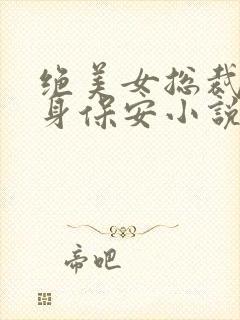 绝美女总裁
身保安小说
帝吧